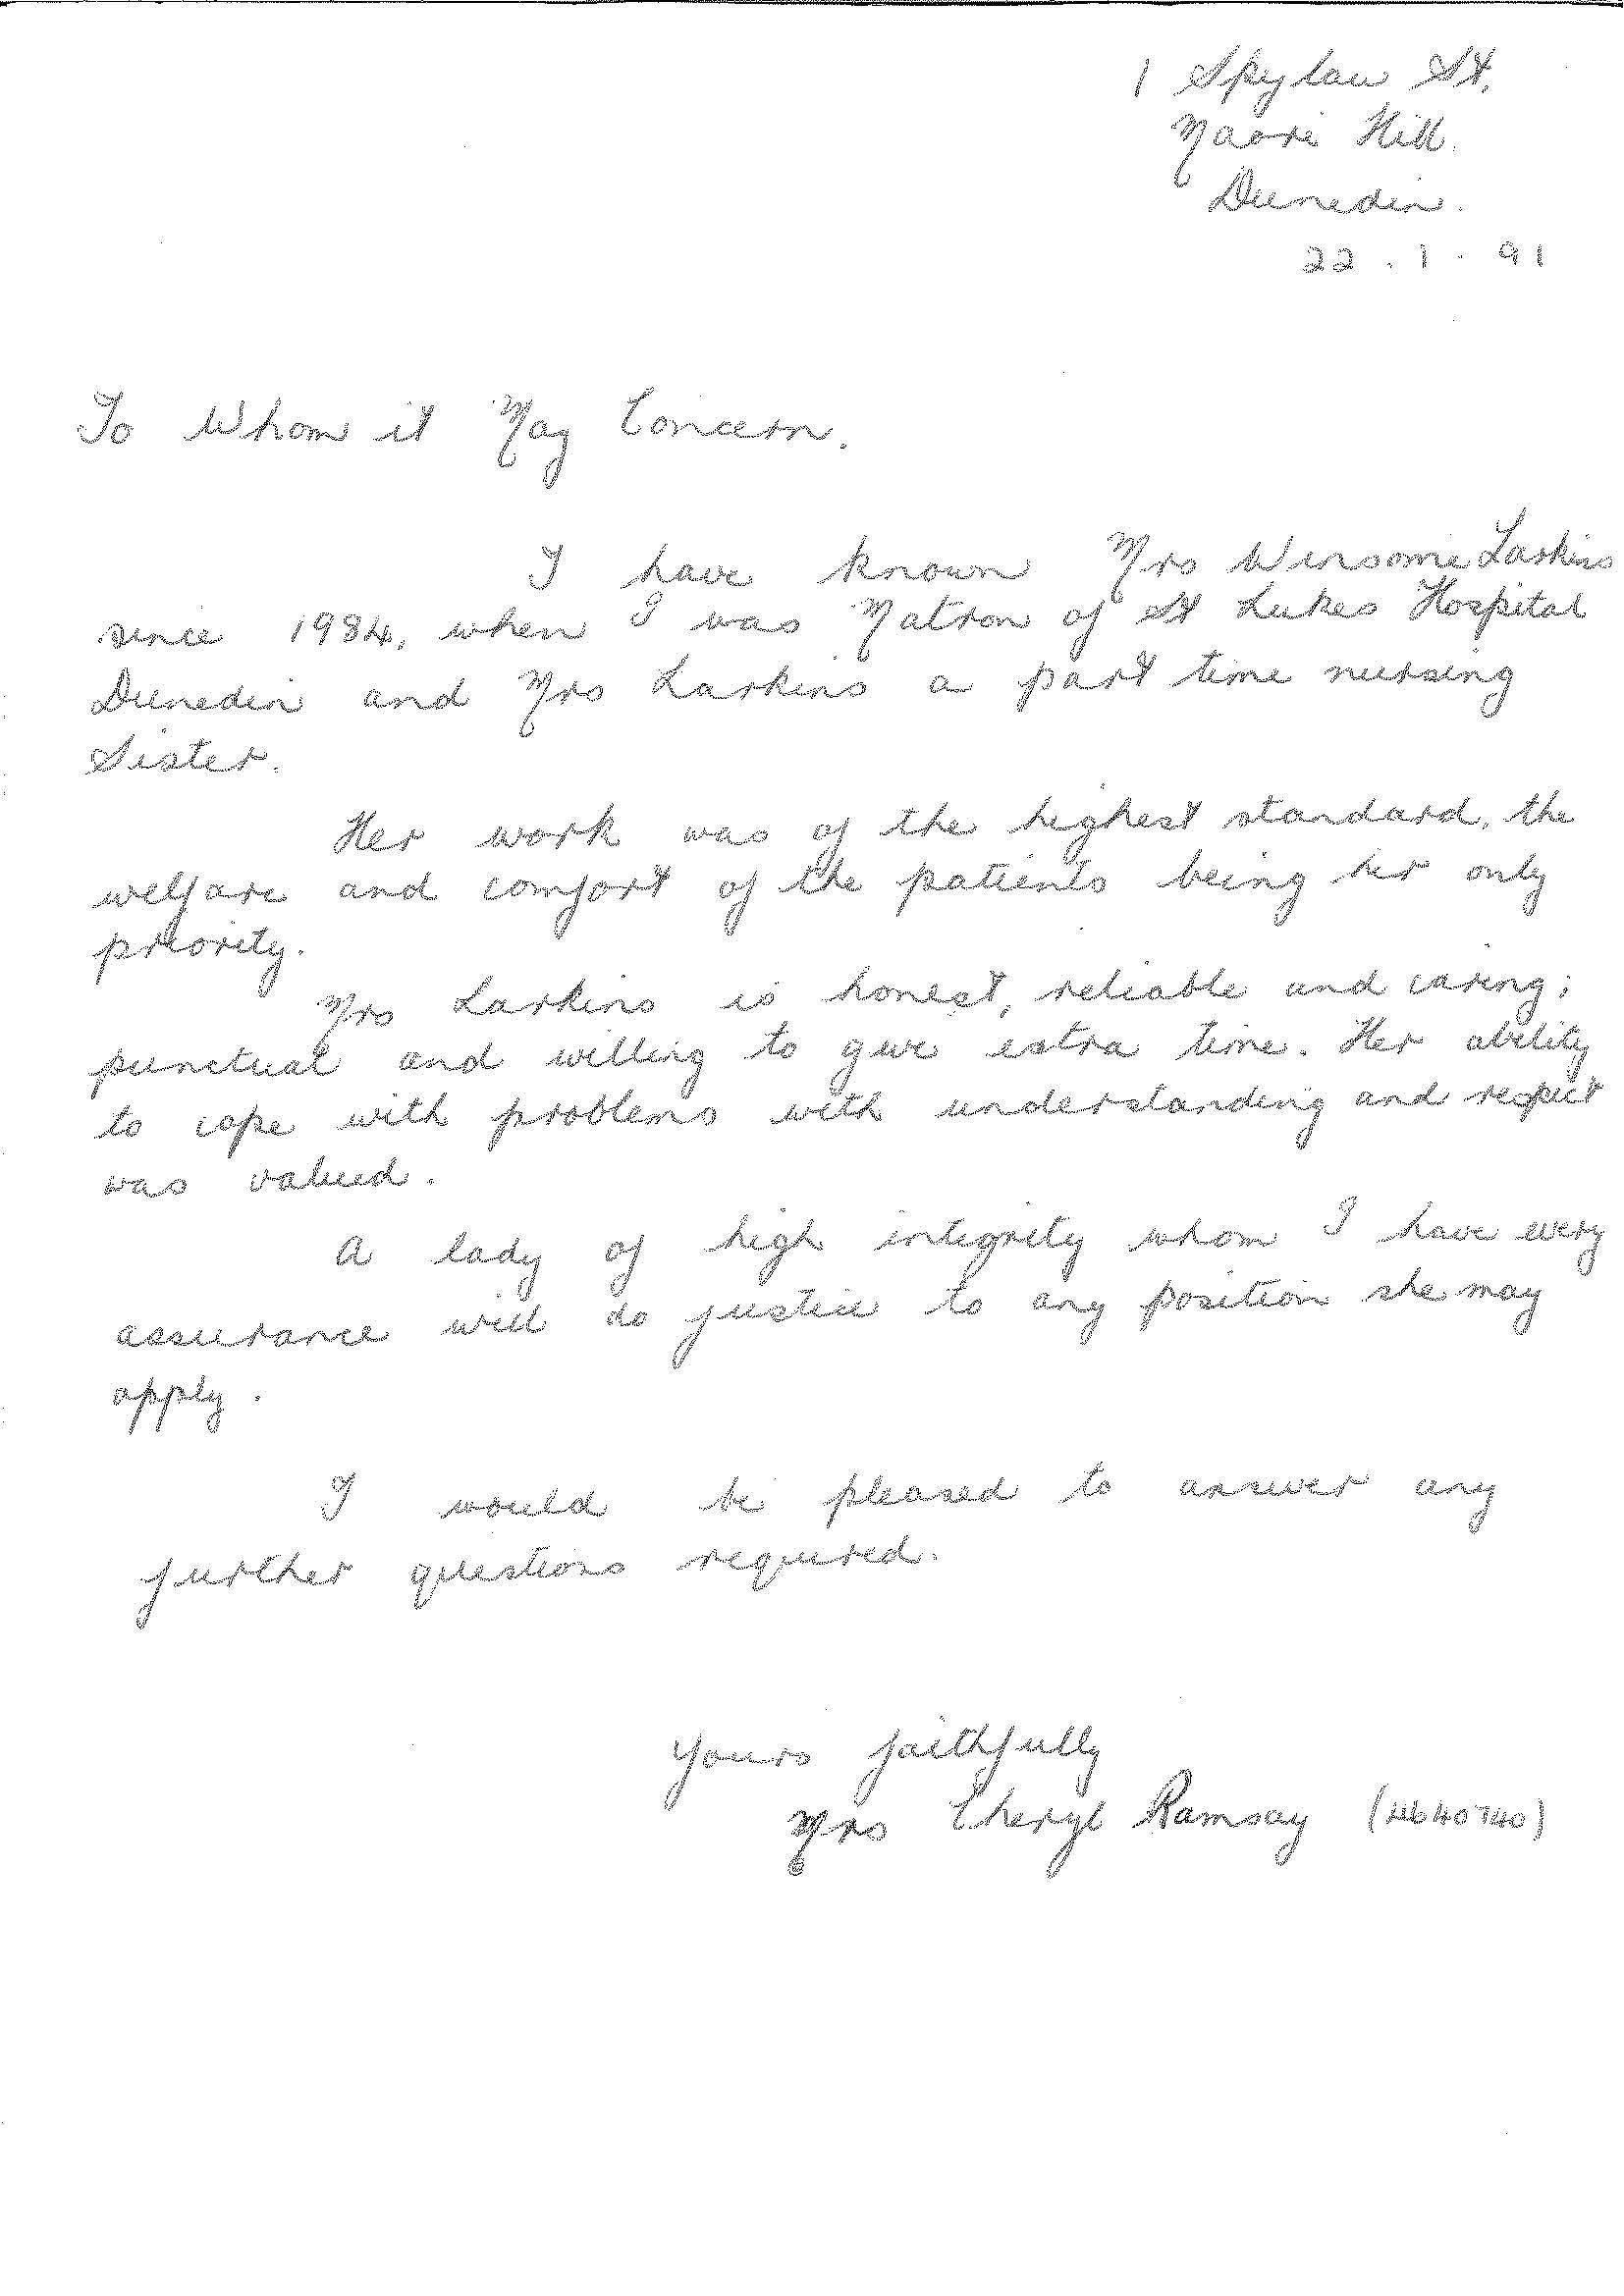 1 Spylaw St,
Maori Hill.
Dunedin.
22.1.91
To Whom it May Concern.
I have known Mrs Winsome Larkins
since 1984, when I was Matron of St Lukes Hospital
Dunedin and Mrs Larkins a part time nursing
Sister.
Her work was of the highest standard, the
welfare and comfort of the patients being her only
priority.
Mrs Larkins is honest, reliable and caring;
punctual and willing to give extra time. Her ability
to cope with problems with understanding and respect
was valued.
A lady of high integrity whom I have every
assurance will do justice to any position she may
apply.
I would be pleased to answer any
further questions required.
Yours faithfully
Mrs Cheryl Ramsay (4640740)